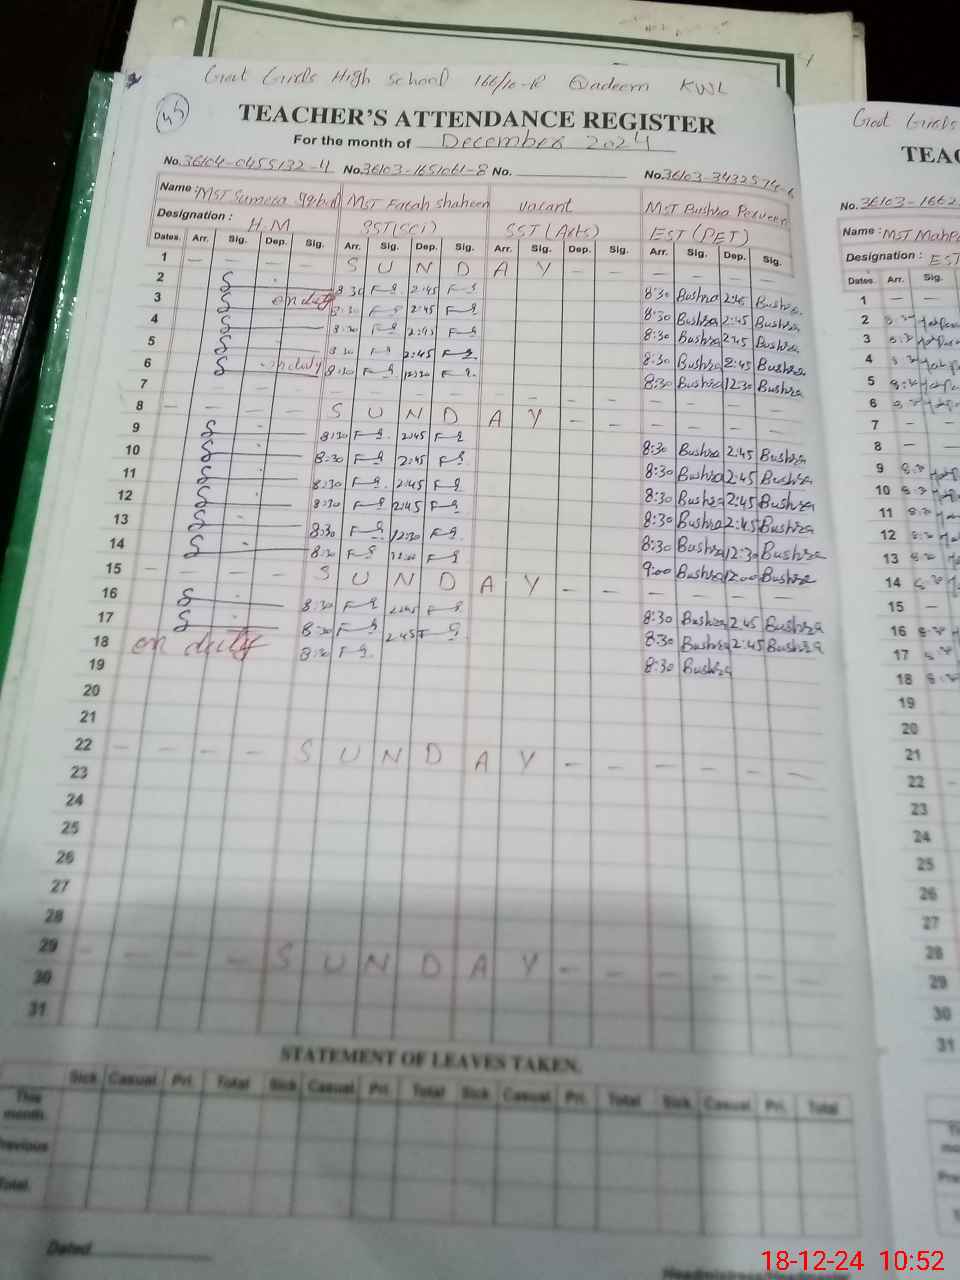 Govt Girls High School 166/10-R Qadeem KWL
45
TEACHER'S ATTENDANCE REGISTER
For the month of December 2024
No. 36104-0455132-4 No. 36103-1651061-8 No. No. 36103-3432574-6
Name: MST Sumera MST Farah Shaheen vacant MST Bushra Perveen
Designation: H.M SST(Sci) SST (Arts) EST (PET)
Dates. Arr. Sig. Dep. Sig. Arr. Sig. Dep. Sig. Arr. Sig. Dep. Sig. Arr. Sig. Dep. Sig.
1 - - - - S U N D A Y - - - - -
2 8:30 2:45 8:30 Bushra 2:45 Bushra
3 on duty 8:30 2:45 8:30 Bushra 2:45 Bushra
4 8:30 2:45 8:30 Bushra 2:45 Bushra
5 8:30 2:45 8:30 Bushra 2:45 Bushra
6 on duty 8:30 12:30 8:30 Bushra 12:30 Bushra
7 - - - - - - - - - - - - - - - -
8 - - - - S U N D A Y - - - - - -
9 8:30 2:45 8:30 Bushra 2:45 Bushra
10 8:30 2:45 8:30 Bushra 2:45 Bushra
11 8:30 2:45 8:30 Bushra 2:45 Bushra
12 8:30 2:45 8:30 Bushra 2:45 Bushra
13 8:30 12:30 8:30 Bushra 12:30 Bushra
14 8:30 9:00 Bushra 12:00 Bushra
15 - - - - S U N D A Y - - - - - -
16 8:30 2:45 8:30 Bushra 2:45 Bushra
17 8:30 2:45 8:30 Bushra 2:45 Bushra
18 on duty 8:30 8:30 Bushra
19
20
21
22 - - - - S U N D A Y - - - - - -
23
24
25
26
27
28
29 - - - - S U N D A Y - - - - - -
30
31
STATEMENT OF LEAVES TAKEN.
Sick Casual Pri. Total Sick Casual Pri. Total Sick Casual Pri. Total Sick Casual Pri. Total
This month
Previous
Total.
Dated
Govt Girls
TEAC
No. 36103-1662
Name: MST
Designation: EST
Dates. Arr. Sig.
1 - -
2 8:30
3 8:30
4 8:30
5 8:30
6 8:30
7 - -
8 - -
9 8:30
10 8:30
11 8:30
12 8:30
13 8:30
14 8:30
15 -
16 8:30
17 8:30
18 8:30
19
20
21
22 -
23
24
25
26
27
28
29
30
31
18-12-24 10:52